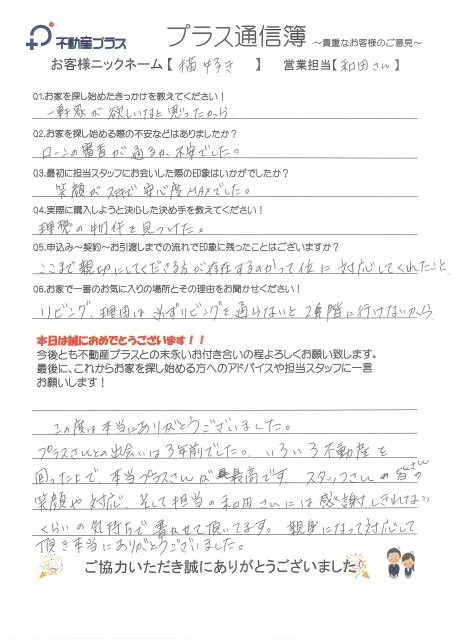 不動産プラス プラス通信簿 ～貴重なお客様のご意見～
お客様ニックネーム【 猫好き 】 営業担当【 和田さん 】
Q1.お家を探し始めたきっかけを教えてください！
一軒家が欲しいなと思ったから
Q2.お家を探し始める際の不安などはありましたか？
ローンの審査が通るか不安でした。
Q3.最初に担当スタッフにお会いした際の印象はいかがでしたか？
笑顔がステキで安心度MAXでした。
Q4.実際に購入しようと決心した決め手を教えてください！
理想の物件を見つけた。
Q5.申込み～契約～お引渡しまでの流れで印象に残ったことはございますか？
ここまで親切にしてくださる方が存在するのかって位に対応してくれたこと
Q6.お家で一番のお気に入りの場所とその理由をお聞かせください！
リビング、理由は必ずリビングを通らないと2階に行けないから
本日は誠におめでとうございます！！
今後とも不動産プラスとの末永いお付き合いの程よろしくお願い致します。
最後に、これからお家を探し始める方へのアドバイスや担当スタッフに一言
お願いします！
この度は本当にありがとうございました。
プラスさんとの出会いは3年前でした。いろいろ不動産を
回った上で、本当プラスさんが最高です スタッフさんの皆さんの
笑顔や対応、そして担当の和田さんには感謝しきれない
くらいの気持ちで書かせて頂いてます。親身になって対応して
頂き本当にありがとうございました。
ご協力いただき誠にありがとうございました